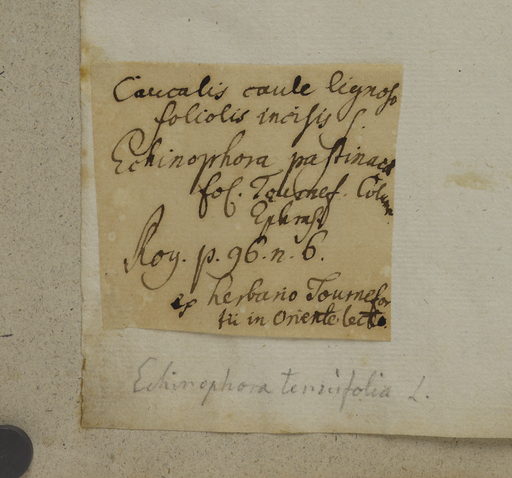 Caucalis caule lignoso
foliolis incisis
Echinophora pastinacæ
fol. Tournef. Colum.
Ephras
Roy. p. 96. n. 6.
ex herbario Tournefor
tii in Oriente lect
Echinophora tenuifolia L.